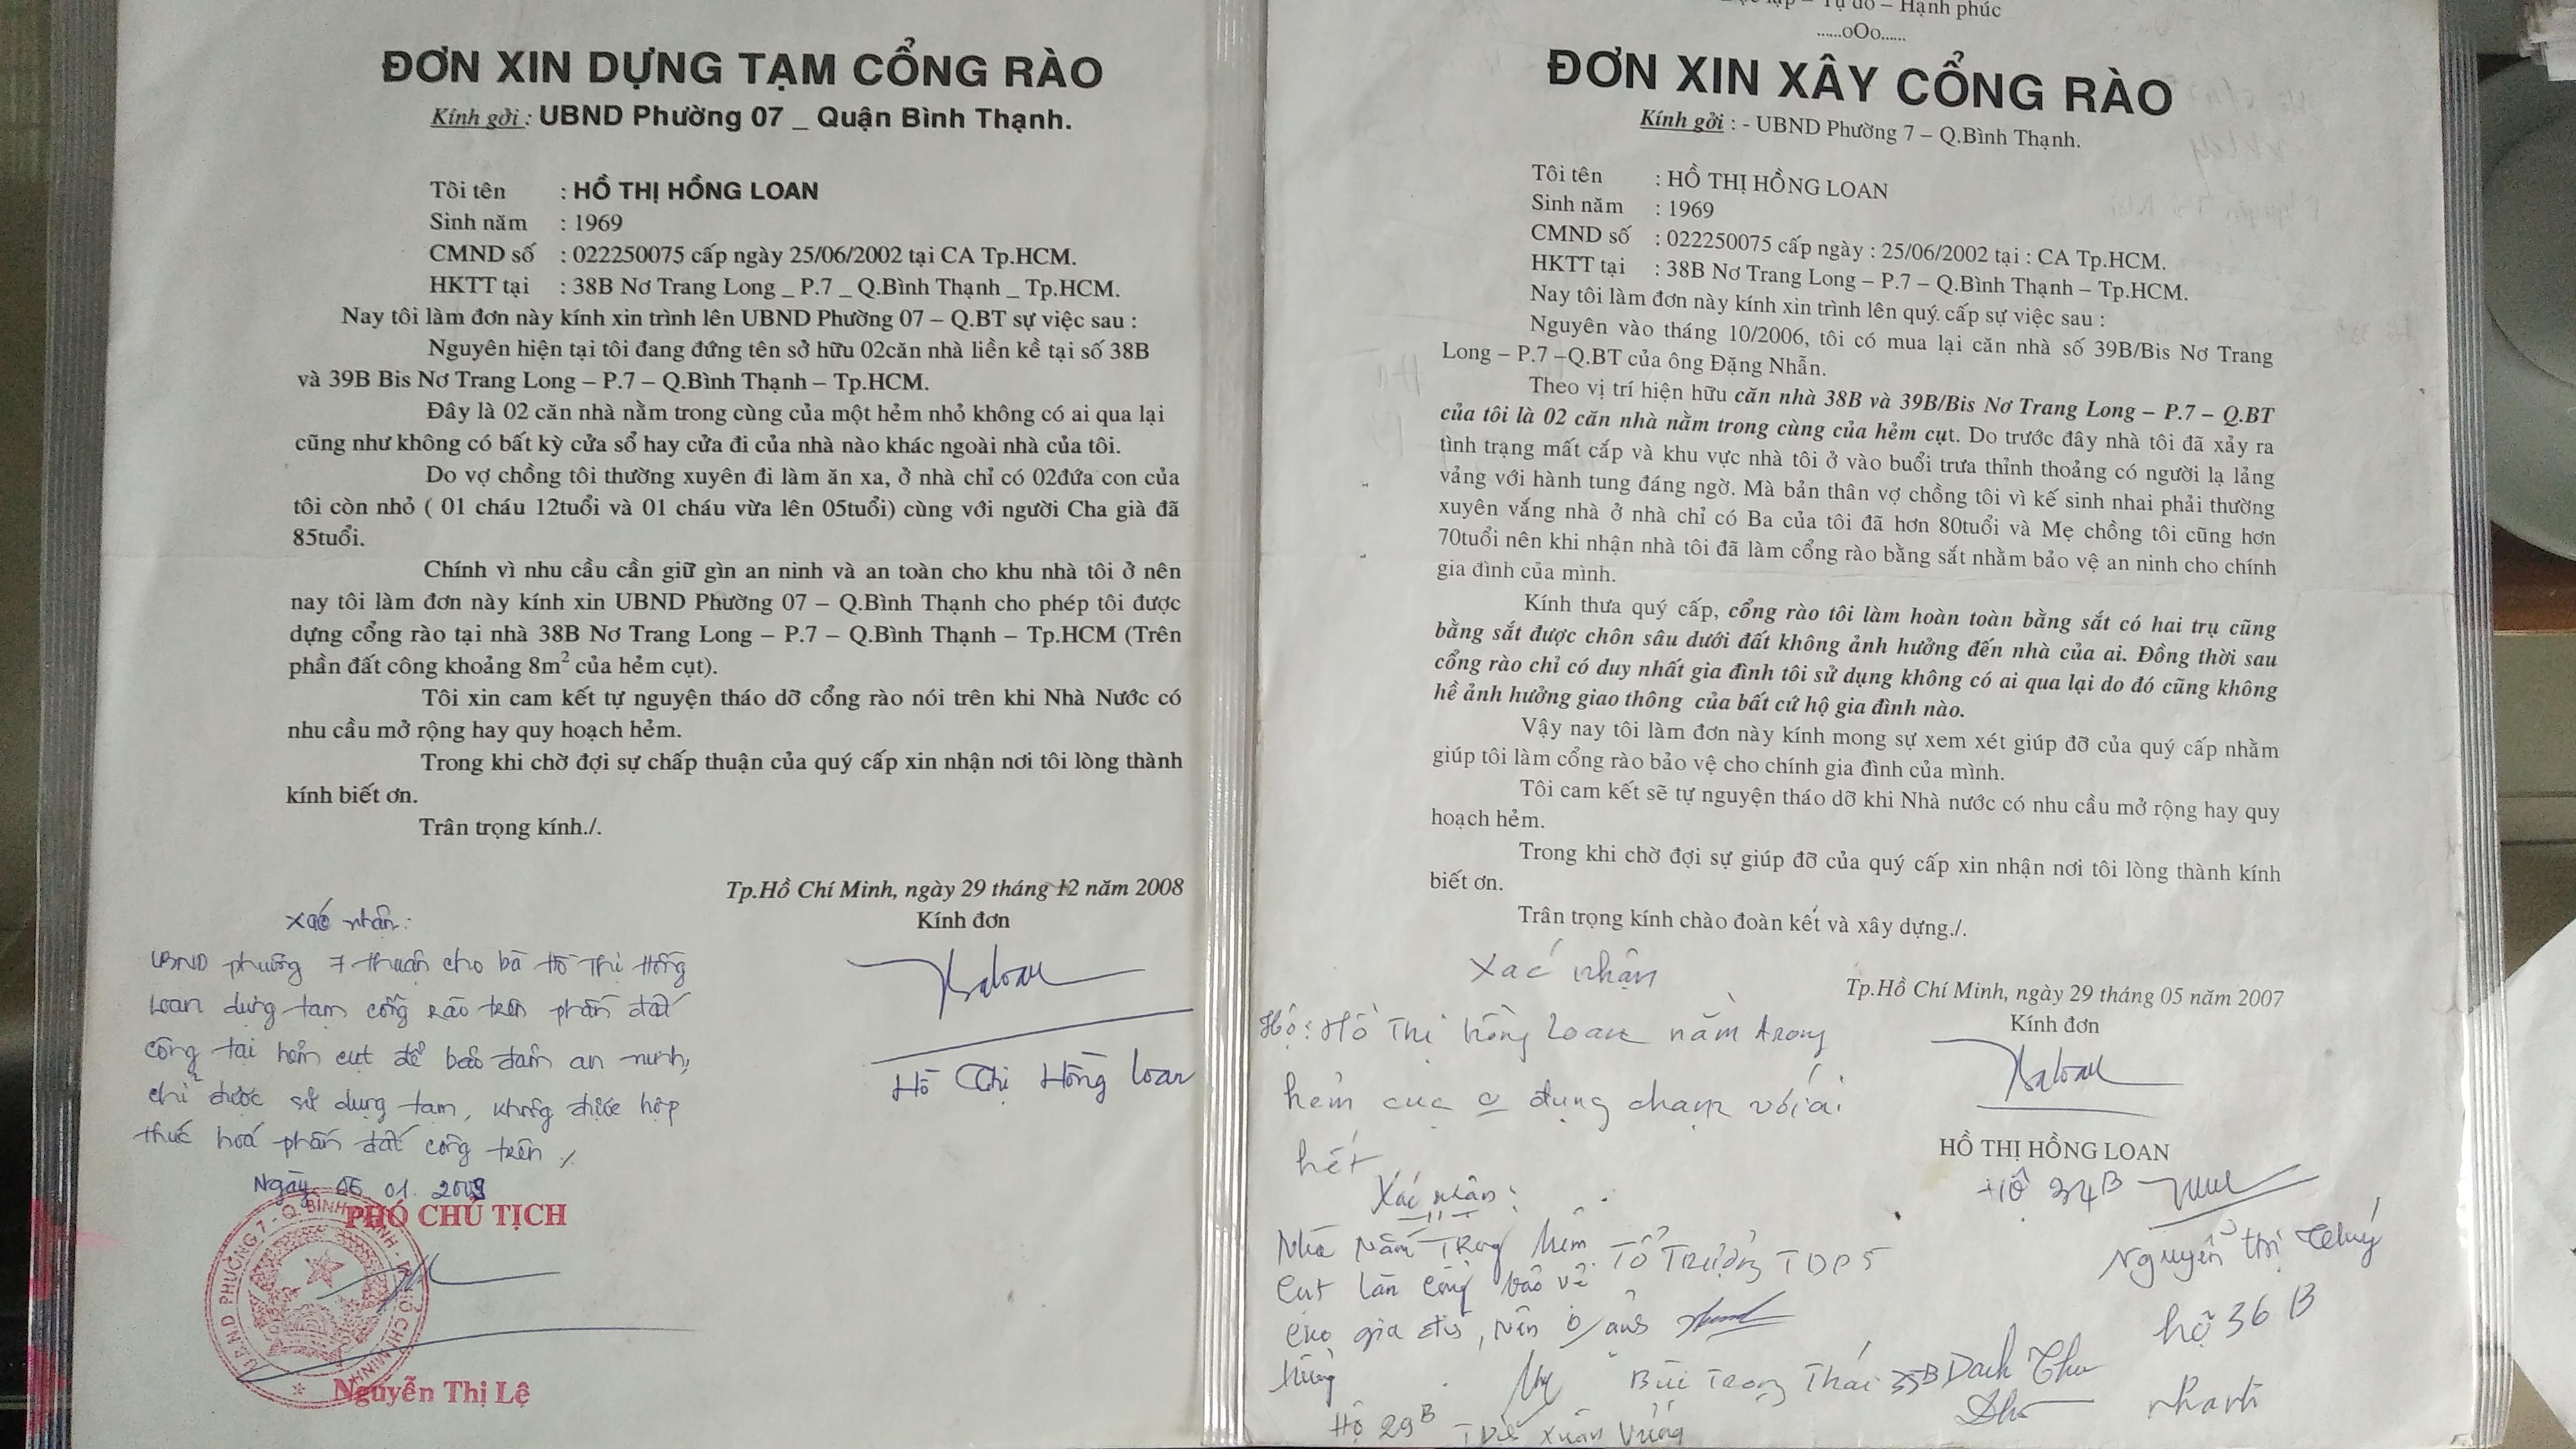 ĐƠN XIN DỰNG TẠM CỔNG RÀO
Kính gởi : UBND Phường 07 _ Quận Bình Thạnh.
Tôi tên : HỒ THỊ HỒNG LOAN
Sinh năm : 1969
CMND số : 022250075 cấp ngày 25/06/2002 tại CA Tp.HCM.
HKTT tại : 38B Nơ Trang Long _ P.7 _ Q.Bình Thạnh _ Tp.HCM.
Nay tôi làm đơn này kính xin trình lên UBND Phường 07 – Q.BT sự việc sau :
Nguyên hiện tại tôi đang đứng tên sở hữu 02căn nhà liền kề tại số 38B
và 39B Bis Nơ Trang Long – P.7 – Q.Bình Thạnh – Tp.HCM.
Đây là 02 căn nhà nằm trong cùng của một hẻm nhỏ không có ai qua lại
cũng như không có bất kỳ cửa sổ hay cửa đi của nhà nào khác ngoài nhà của tôi.
Do vợ chồng tôi thường xuyên đi làm ăn xa, ở nhà chỉ có 02đứa con của
tôi còn nhỏ ( 01 cháu 12tuổi và 01 cháu vừa lên 05tuổi) cùng với người Cha già đã
85tuổi.
Chính vì nhu cầu cần giữ gìn an ninh và an toàn cho khu nhà tôi ở nên
nay tôi làm đơn này kính xin UBND Phường 07 – Q.Bình Thạnh cho phép tôi được
dựng cổng rào tại nhà 38B Nơ Trang Long – P.7 – Q.Bình Thạnh – Tp.HCM (Trên
phần đất công khoảng 8m² của hẻm cụt).
Tôi xin cam kết tự nguyện tháo dỡ cổng rào nói trên khi Nhà Nước có
nhu cầu mở rộng hay quy hoạch hẻm.
Trong khi chờ đợi sự chấp thuận của quý cấp xin nhận nơi tôi lòng thành
kính biết ơn.
Trân trọng kính./.
Tp.Hồ Chí Minh, ngày 29 tháng 12 năm 2008
Kính đơn
Hồ Thị Hồng Loan
Xác nhận:
UBND phường 7 thuận cho bà Hồ Thị Hồng
Loan dựng tạm cổng rào trên phần đất
công tại hẻm cụt để bảo đảm an ninh,
chỉ được sử dụng tạm, không được hợp
thức hoá phần đất công trên ./.
Ngày 06 01. 2009
PHÓ CHỦ TỊCH
U.B.N.D PHƯỜNG 7 - Q. BÌNH THẠNH - T.P HỒ CHÍ MINH
Nguyễn Thị Lệ
Độc lập – Tự do – Hạnh phúc
......oOo......
ĐƠN XIN XÂY CỔNG RÀO
Kính gởi : - UBND Phường 7 – Q.Bình Thạnh.
Tôi tên : HỒ THỊ HỒNG LOAN
Sinh năm : 1969
CMND số : 022250075 cấp ngày : 25/06/2002 tại : CA Tp.HCM.
HKTT tại : 38B Nơ Trang Long – P.7 – Q.Bình Thạnh – Tp.HCM.
Nay tôi làm đơn này kính xin trình lên quý cấp sự việc sau :
Nguyên vào tháng 10/2006, tôi có mua lại căn nhà số 39B/Bis Nơ Trang
Long – P.7 –Q.BT của ông Đặng Nhẫn.
Theo vị trí hiện hữu căn nhà 38B và 39B/Bis Nơ Trang Long – P.7 – Q.BT
của tôi là 02 căn nhà nằm trong cùng của hẻm cụt. Do trước đây nhà tôi đã xảy ra
tình trạng mất cắp và khu vực nhà tôi ở vào buổi trưa thỉnh thoảng có người lạ lảng
vảng với hành tung đáng ngờ. Mà bản thân vợ chồng tôi vì kế sinh nhai phải thường
xuyên vắng nhà ở nhà chỉ có Ba của tôi đã hơn 80tuổi và Mẹ chồng tôi cũng hơn
70tuổi nên khi nhận nhà tôi đã làm cổng rào bằng sắt nhằm bảo vệ an ninh cho chính
gia đình của mình.
Kính thưa quý cấp, cổng rào tôi làm hoàn toàn bằng sắt có hai trụ cũng
bằng sắt được chôn sâu dưới đất không ảnh hưởng đến nhà của ai. Đồng thời sau
cổng rào chỉ có duy nhất gia đình tôi sử dụng không có ai qua lại do đó cũng không
hề ảnh hưởng giao thông của bất cứ hộ gia đình nào.
Vậy nay tôi làm đơn này kính mong sự xem xét giúp đỡ của quý cấp nhằm
giúp tôi làm cổng rào bảo vệ cho chính gia đình của mình.
Tôi cam kết sẽ tự nguyện tháo dỡ khi Nhà nước có nhu cầu mở rộng hay quy
hoạch hẻm.
Trong khi chờ đợi sự giúp đỡ của quý cấp xin nhận nơi tôi lòng thành kính
biết ơn.
Trân trọng kính chào đoàn kết và xây dựng./.
Tp.Hồ Chí Minh, ngày 29 tháng 05 năm 2007
Kính đơn
HỒ THỊ HỒNG LOAN
Xác nhận
Hộ: Hồ Thị Hồng Loan nằm trong
hẻm cục o đụng chạm với ai
hết
Xác nhận:
Nhà nằm Trong hẻm
cụt làm cổng bảo vệ
cho gia đình, nên o ảnh
hưởng
Tổ Trưởng TDP5
Hộ 34B
Nguyễn thị Thúy
hộ 36B
Bùi Trọng Thái 35B
Hộ 29B
Xuân